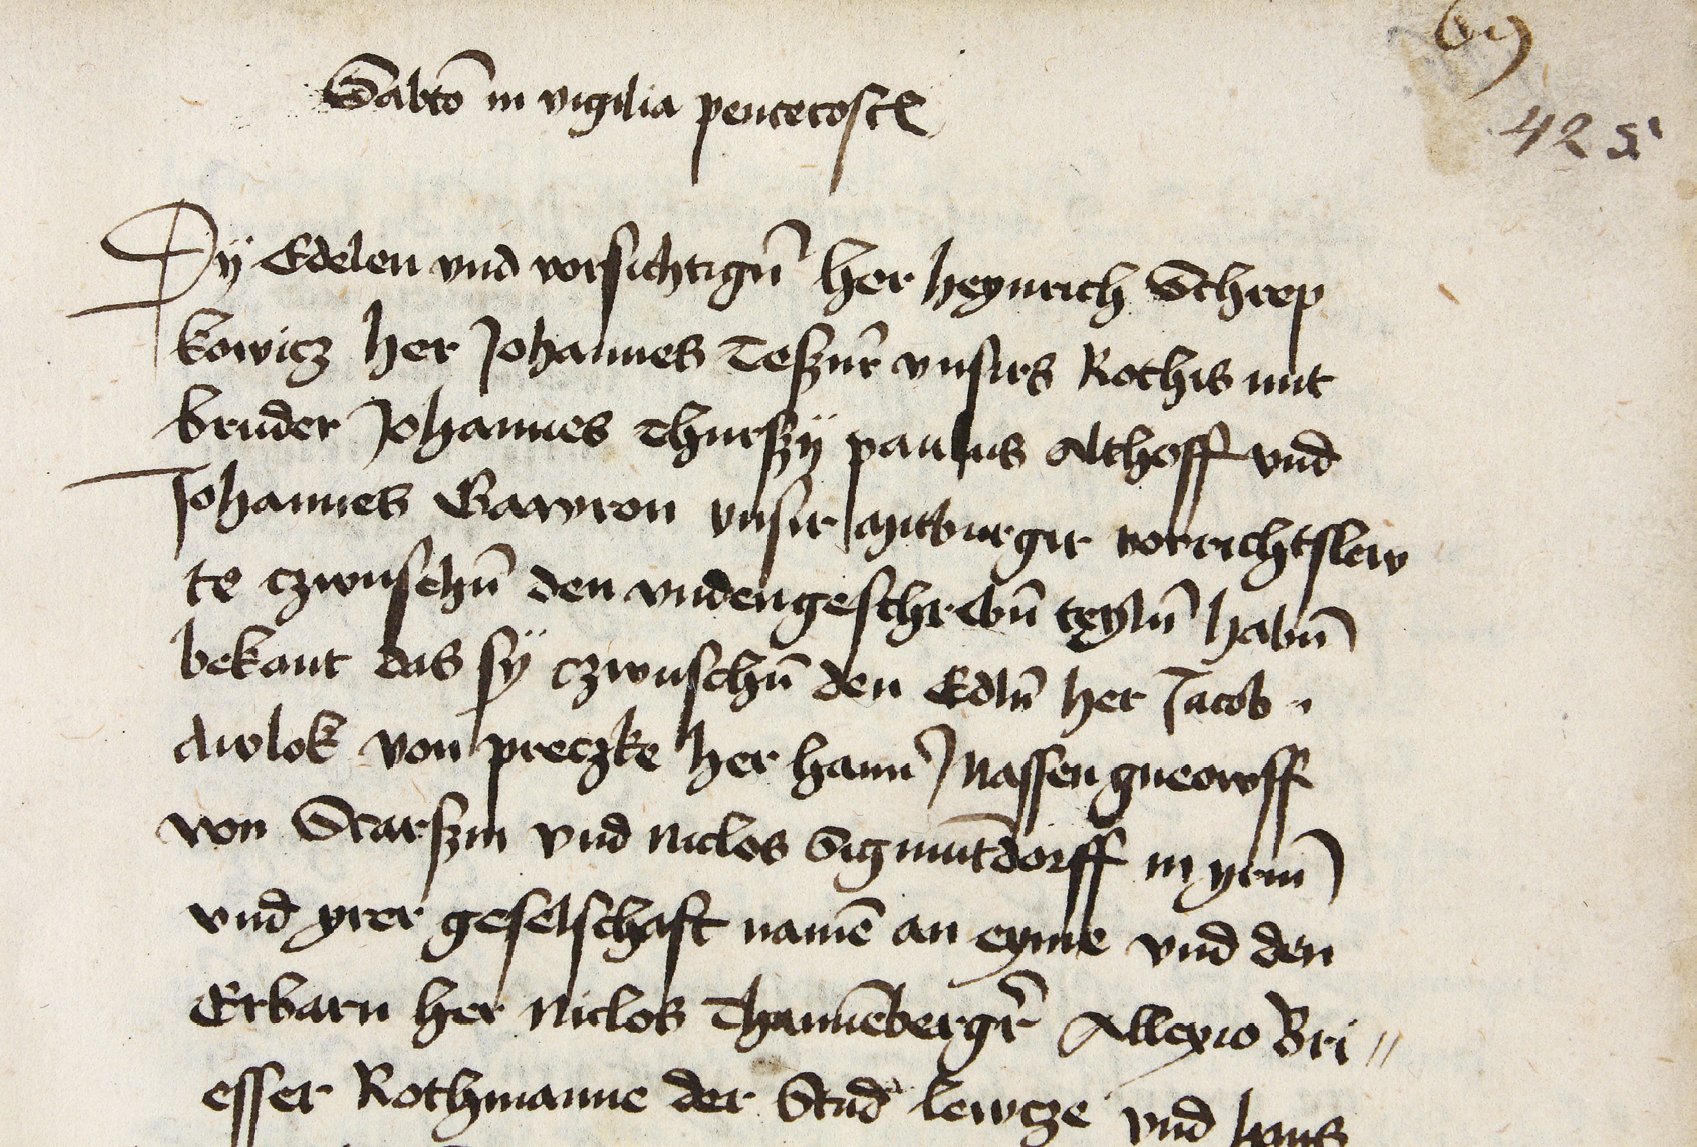 425
Sabto in vigilia pentecost
Dy Edelen vnd vorsichtign her heynrich Schrep
kowicz her Johannes Teßnr vnsirs Rothis mit
bruder Johannes Thurßÿ paulus Althoff vnd
Johannes Gawron vnsir mitburgir vorrichtslew
te czwuschn den vndengeschrebn teyln habn
bekant das sÿ czwuschn den Edln her Jacob
von preczke her hann Nassengneowff
von Scarßin vnd Niclos Sigmutdorff in yrem
vnd yrer geselschaft name an eyme vnd den
Erbarn her Niclos Thannebergr Allexio Bri //
esser Rothmanne der Stad lewcze vnd hans